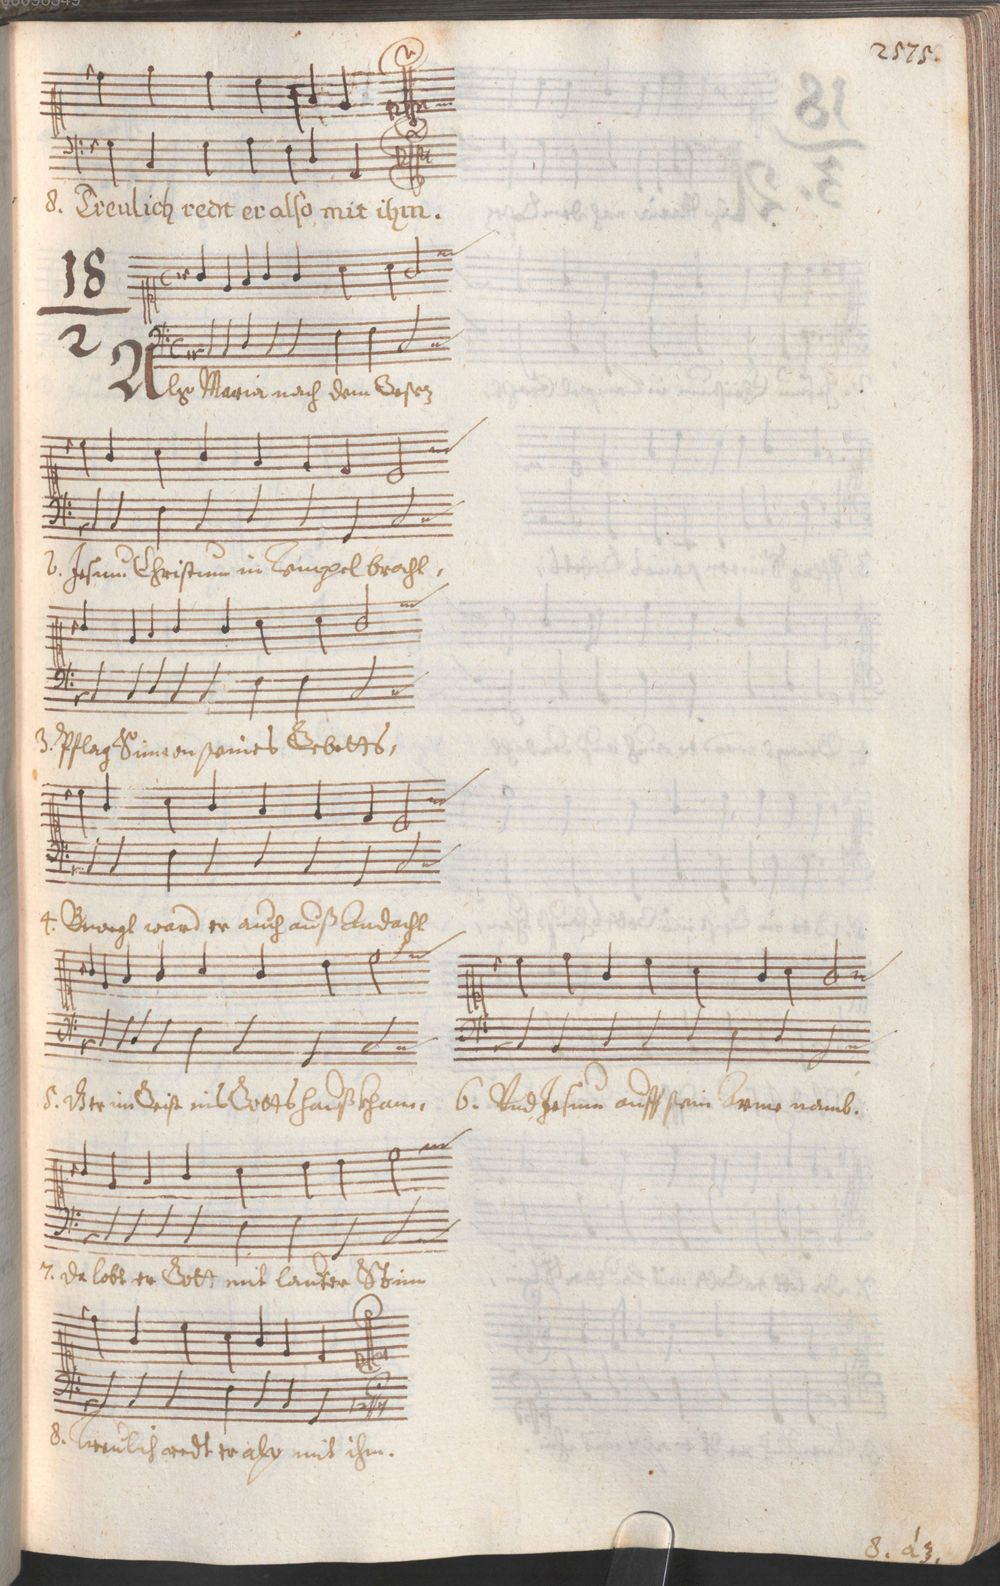 2575.
8. Treulich redt er also mit ihm.
18
2
Alß Maria nach dem Gesetz
2. Jesum Christum in Tempel bracht,
3. Pflag Simeon seines Gebetts,
4. Bewegt ward er auch auß Andacht
5. Der im Geist ins Gotts hauß kham,
6. Und Jesum auff sein Arme namb.
7. Da lobt er Gott mit lauter Stim
8. Treulich redt er also mit ihm.
8. á 3.